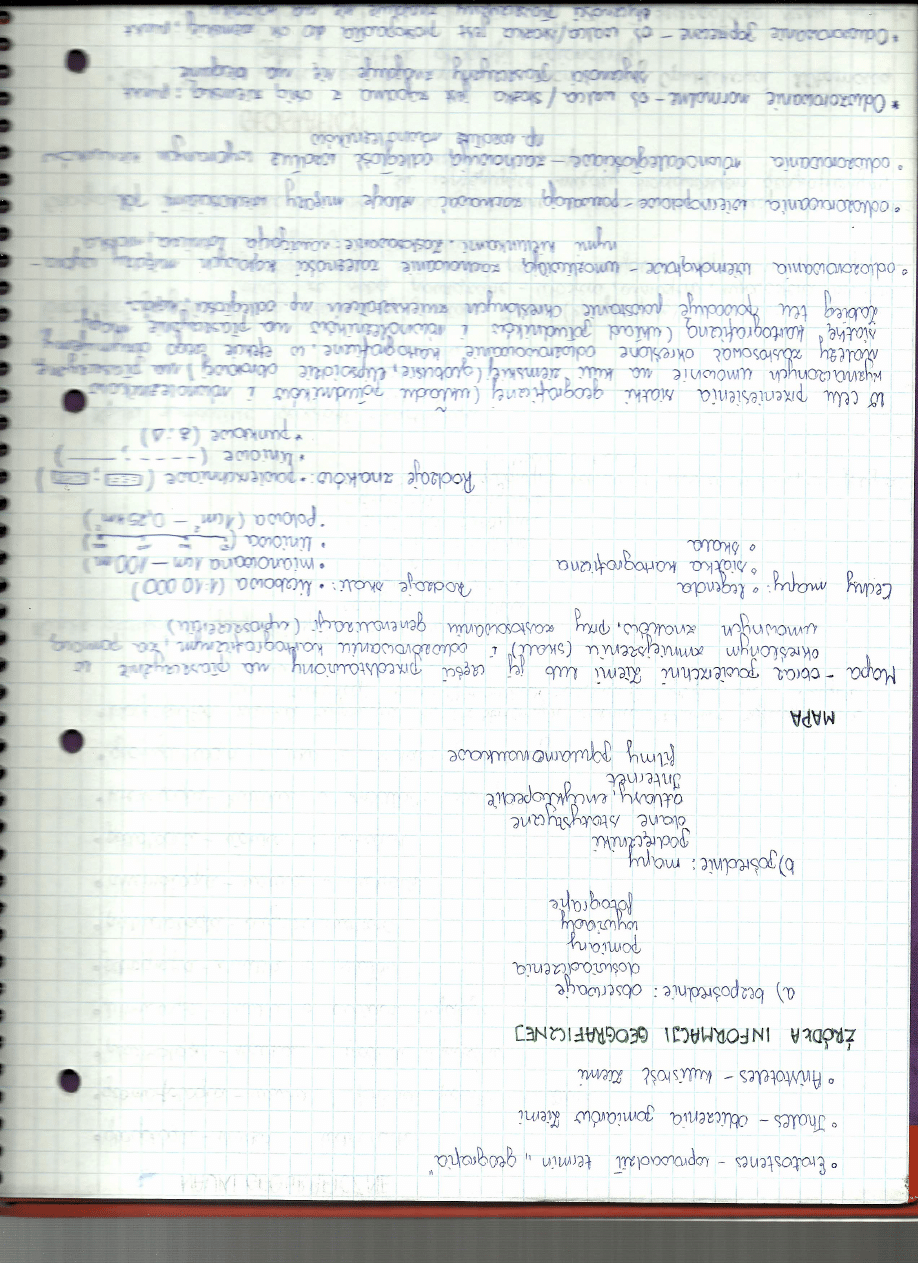 • Eratostenes - wprowadził termin „geografia"
• Thales - obliczenia pomiarów Ziemi
• Arystoteles - kulistość Ziemi
ŹRÓDŁA INFORMACJI GEOGRAFICZNEJ
a) bezpośrednie: obserwacje
doświadczenia
pomiary
wywiady
fotografie
b) pośrednie: mapy
podręczniki
dane statystyczne
atlasy, encyklopedie
Internet
filmy popularnonaukowe
MAPA
Mapa - obraz powierzchni Ziemi lub jej części przedstawiony na płaszczyźnie w
określonym zmniejszeniu (skali) i odwzorowaniu kartograficznym, za pomocą
umownych znaków, przy zastosowaniu generalizacji (uproszczeniu)
Cechy mapy: • legenda
• siatka kartograficzna
• skala
Rodzaje skali: • liczbowa (1:10 000)
• mianowana 1cm - 100m)
• liniowa
• polowa (1cm² - 0,25km²)
Rodzaje znaków: • powierzchniowe
• liniowe (-----; ——)
• punktowe
W celu przeniesienia siatki geograficznej (układu południków i równoleżników
wyznaczonych umownie na kuli ziemskiej (globusie, elipsoidzie obrotowej) na płaszczyznę
należy zastosować określone odwzorowanie kartograficzne w efekcie czego otrzymujemy
siatkę kartograficzną (układ południków i równoleżników na płaszczyźnie mapy
Zabieg ten powoduje powstanie określonych zniekształceń np odległości, kątów
• odwzorowania wiernokątne - umożliwiają zachowanie zależności kątowych między
nymi kierunkami. Zastosowanie: nawigacja lotnicza, morska
• odwzorowania wiernopolowe - pozwalają zachować relacje między wielkościami pól
• odwzorowania równoodległościowe - zachowują odległość wzdłuż wybranych kierunków
np. wzdłuż równoleżników
• Odwzorowanie normalne - oś walca / stożka jest zgodna z osią ziemską; punkt
styczności płaszczyzny znajduje się na biegunie
• Odwzorowanie poprzeczne - oś walca/stożka jest prostopadła do osi ziemskiej; punkt
styczności płaszczyzny znajduje się na równiku